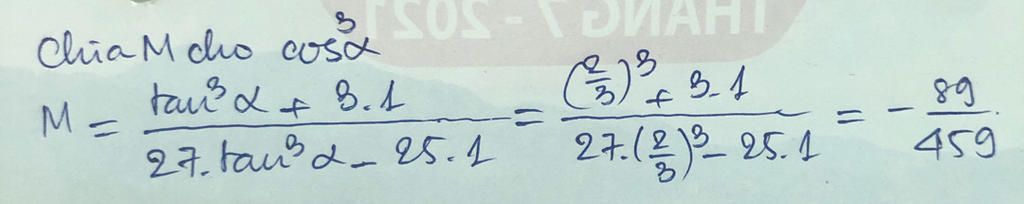 THÁNG 7 - 2021
Chia M cho cos³α
M = (tan³α + 3.1)/(27.tan³α - 25.1) = ((2/3)³ + 3.1)/(27.(2/3)³ - 25.1) = - 89/459.